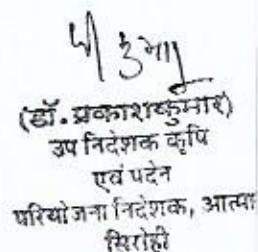 (डॉ. प्रकाशकुमार)
उप निदेशक कृषि
एवं पदेन
परियोजना निदेशक, आत्मा
सिरोही